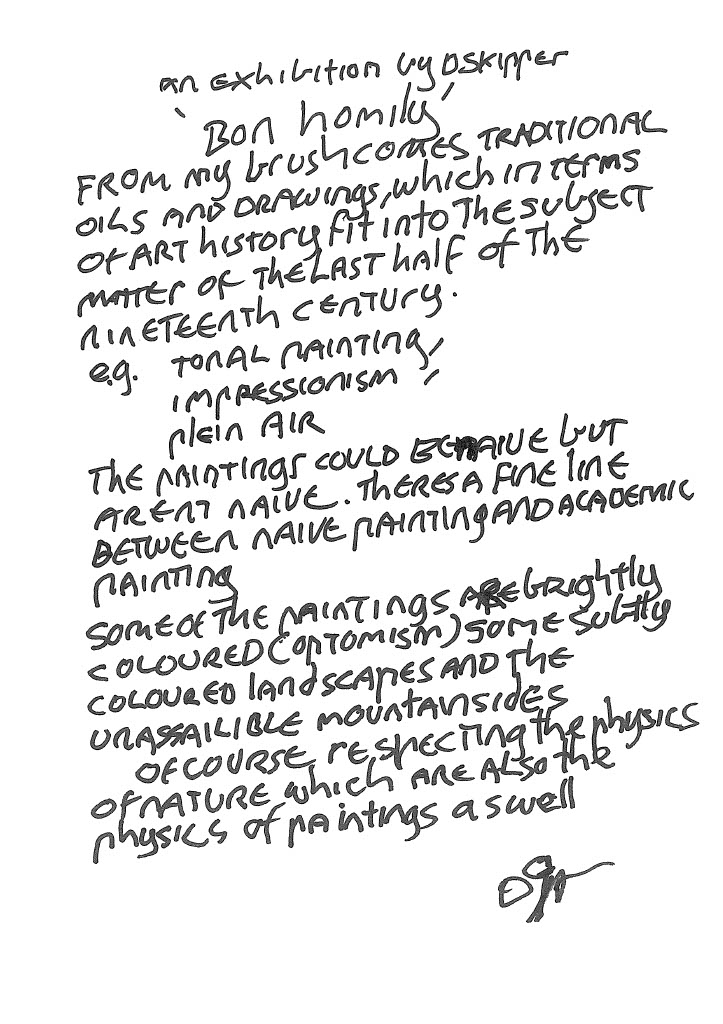 an EXHIBITION by DSKIPPER
'BON homily'
FROM my brush comes TRADITIONAL
OILS AND DRAWINGS, which in TERMS
OF ART history fit into THE SUBJECT
MATTER OF THE LAST half of THE
NINETEENTH CENTURY.
e.g. TONAL PAINTING,
IMPRESSIONISM,
plein AIR
THE PAINTINGS COULD BE NAIVE but
ARENT NAIVE. THERES A FINE LINE
BETWEEN NAIVE PAINTING AND ACADEMIC
PAINTING
SOME OF THE PAINTINGS ARE brightly
COLOURED (optomism) SOME SUbtly
COLOURED landSCAPES AND THE
UNASSAILIBLE MOUNTAINSIDES
OF COURSE respecting the physics
OF NATURE which ARE ALSO the
physics of paintings as well